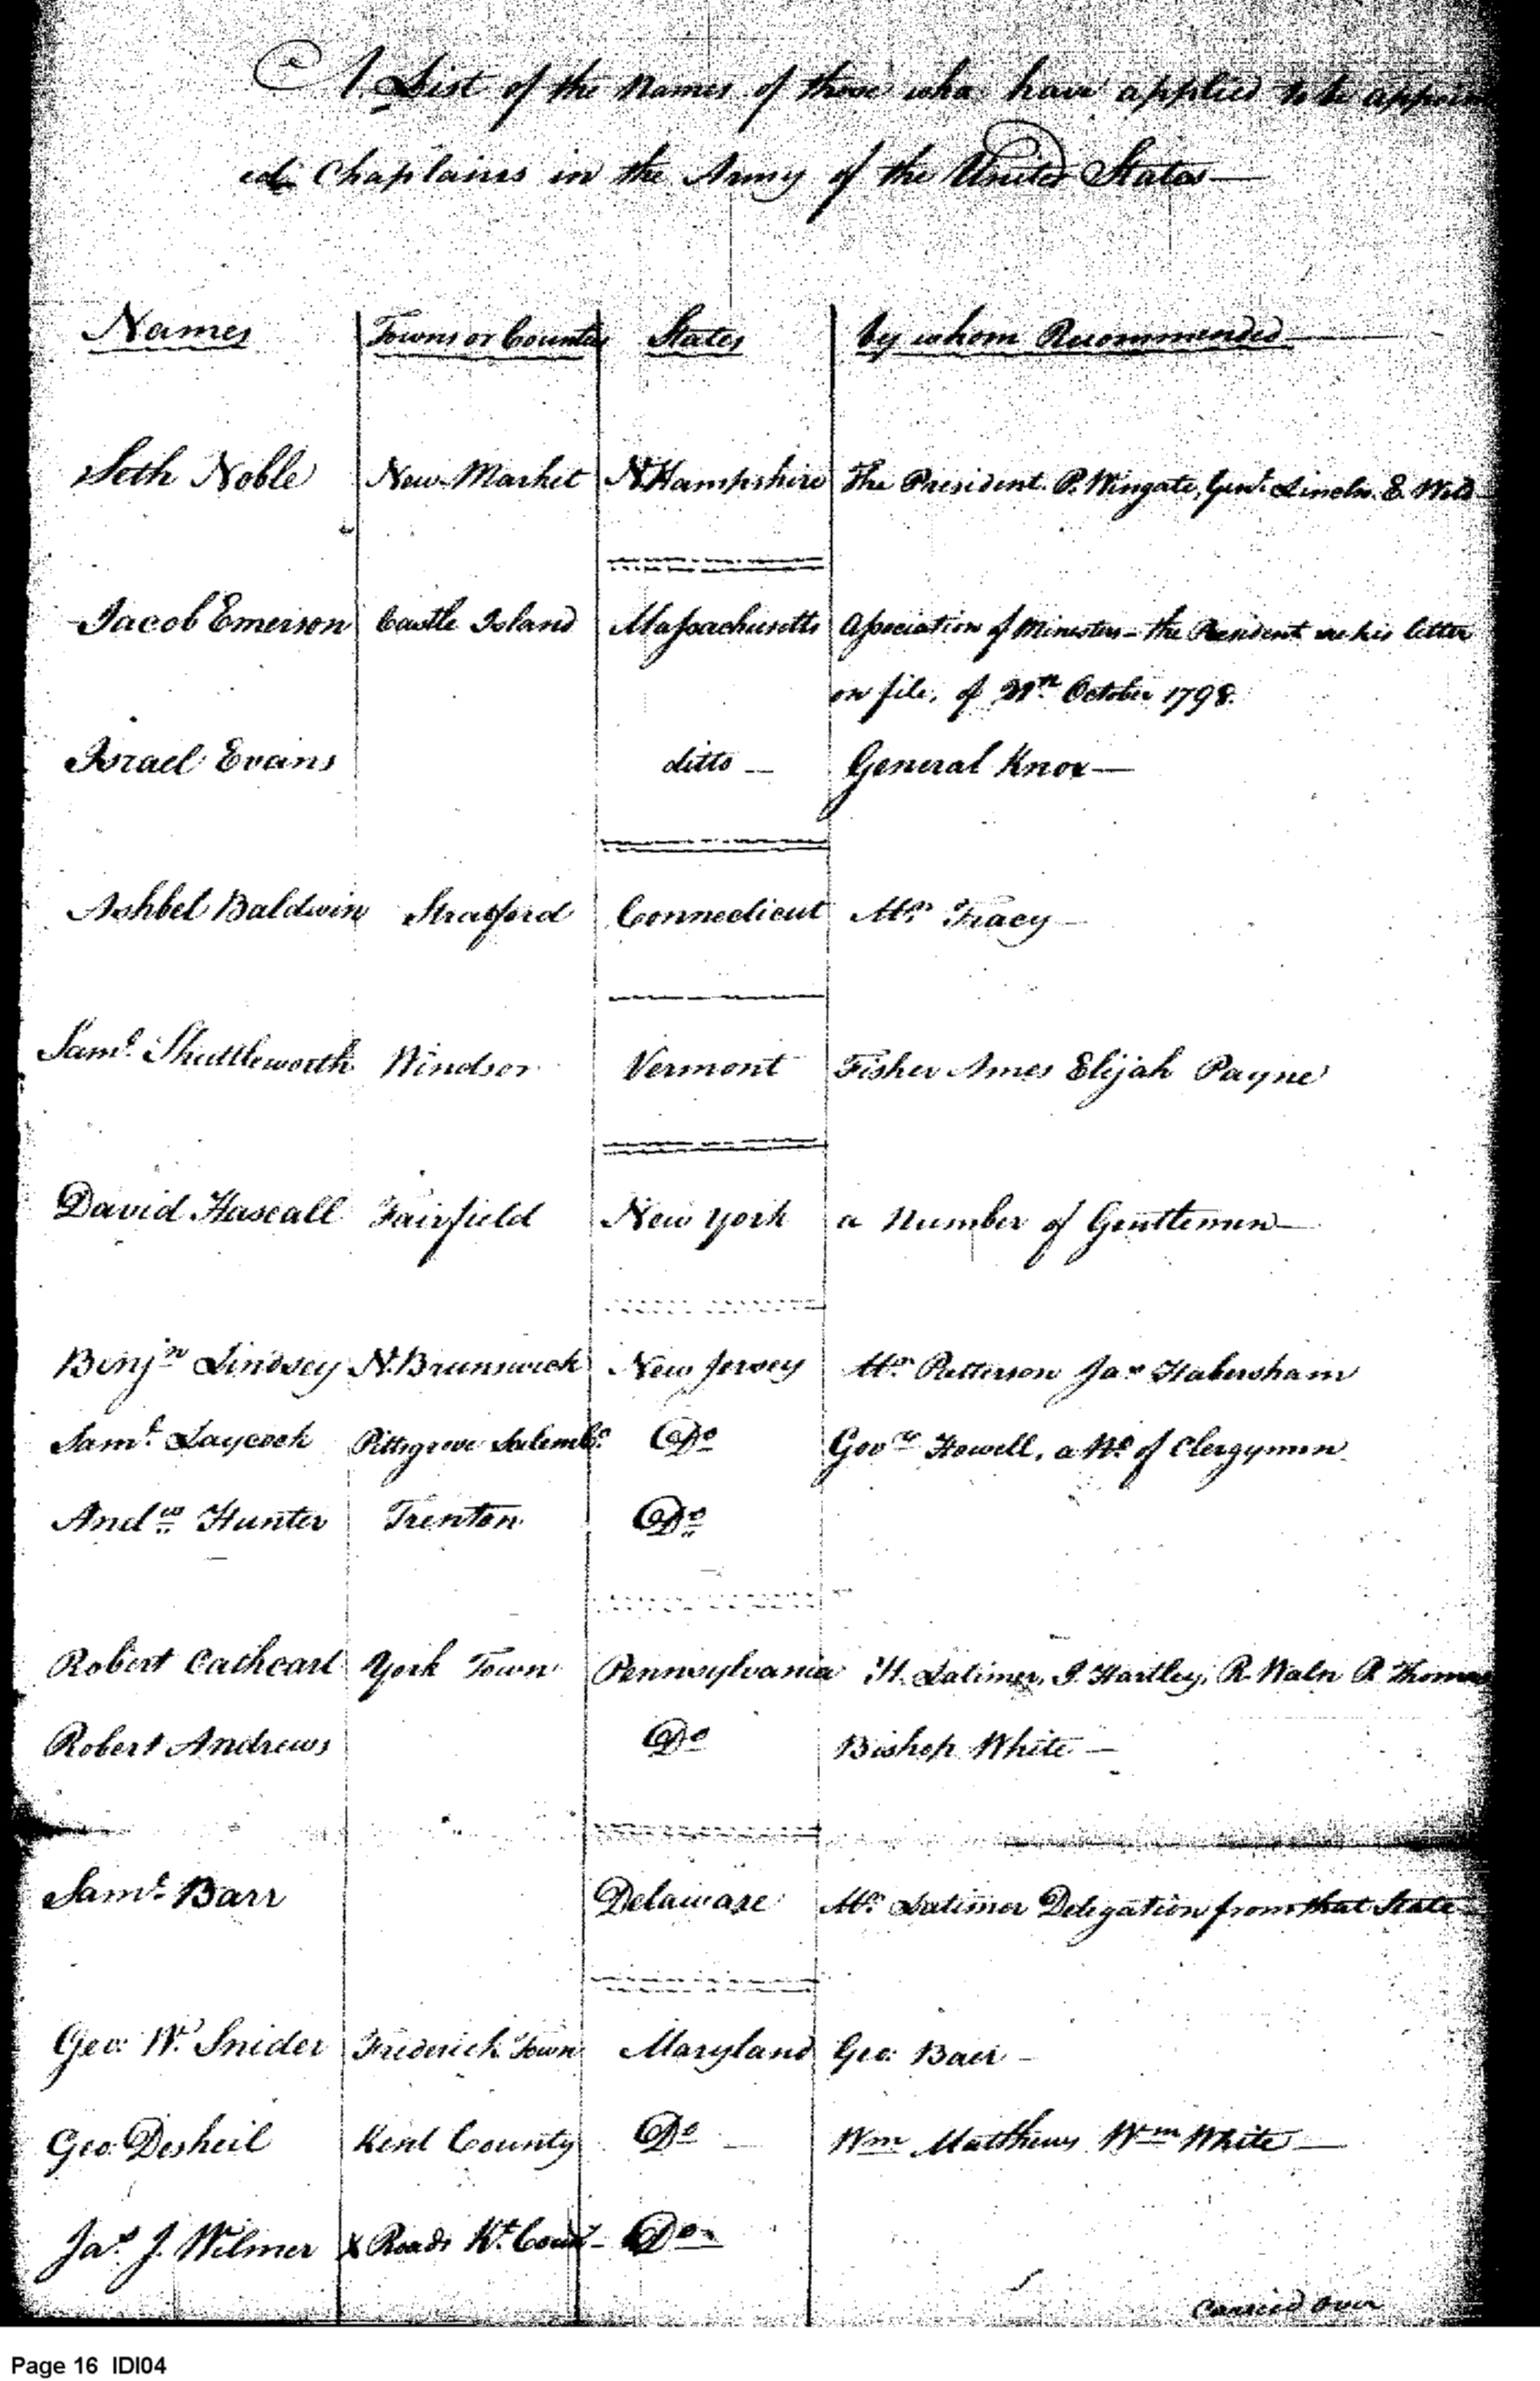 A List of the Names of those who have applied to be appoin
ed Chaplains in the Army of the United States—
Names Towns or Counties States by whom Recommended
Seth Noble New Market N Hampshire The President. P. Wingate, Genl. Lincoln. E. Weld
Jacob Emerson Castle Island Massachusetts Association of Ministers – the President in his letter
on file, of October 1798.
Israel Evans ditto — General Knox—
Ashbel Baldwin Stratford Connecticut Mr. Tracy —
Saml. Shuttleworth Windsor Vermont Fisher Ames Elijah Payne
David Hascall Fairfield New York a Number of Gentlemen—
Benjn Lindsey N. Brunswick New Jersey Mr. Patterson Jas Habersham
Saml. Laycock Pittsgrove Salem Co. Do Govr Howell, a No. of Clergymen.
Andw Hunter Trenton Do
Robert Cathcart York Town Pennsylvania H. Latimer, J. Hartley, R. Waln R. Thomas
Robert Andrews Do Bishop White —
Saml. Barr Delaware Mr. Latimer Delegation from that State—
Geo: W. Snider Frederick Town Maryland Geo: Baer —
Geo. Desheil Kent County Do — Wm Matthews Wm White—
Jas. J. Wilmer X Roads Kt. Couny – Do
Carried Over
Page 16 IDI04